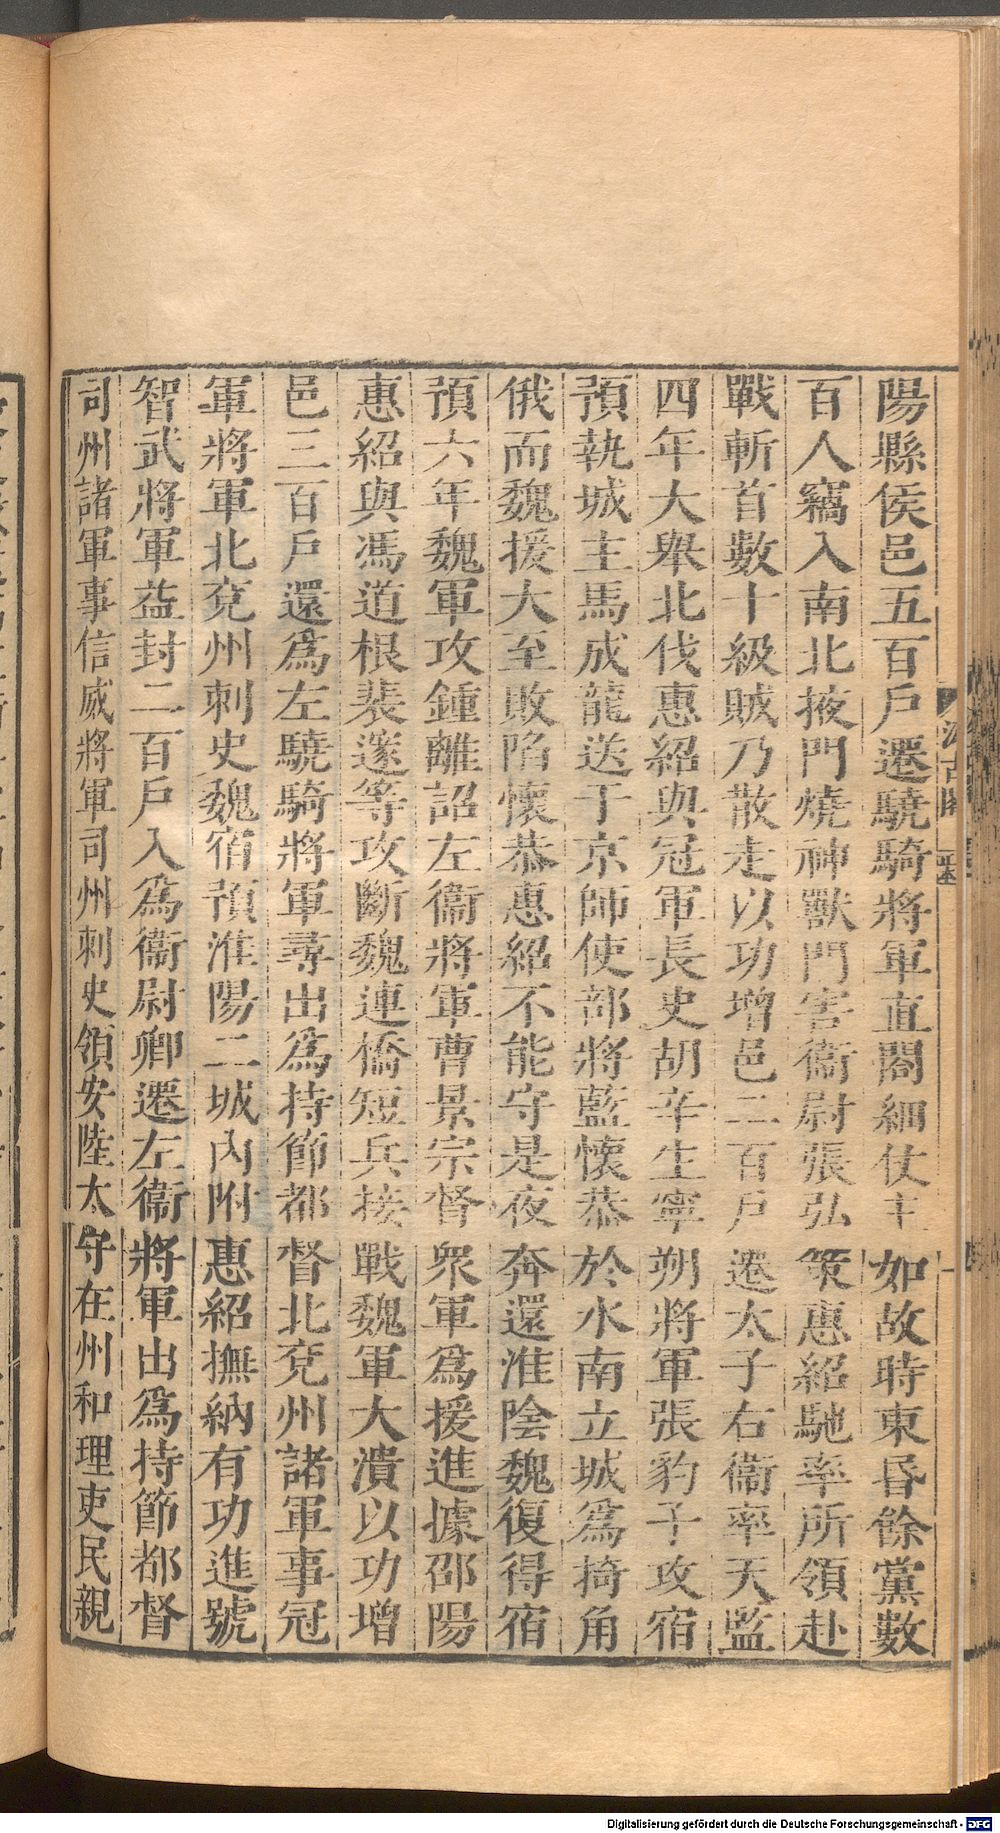 陽縣侯邑五百戶遷驍騎將軍直閤細仗主如故時東昏餘黨數
百人竊入南北掖門燒神獸門害衞尉張弘策惠紹馳率所領赴
戰斬首數十級賊乃散走以功增邑二百戶遷太子右衞率天監
四年大舉北伐惠紹與冠軍長史胡辛生寧朔將軍張豹子攻宿
預執城主馬成龍送于京師使部將藍懷恭於水南立城爲掎角
俄而魏援大至敗陷懷恭惠紹不能守是夜奔還淮陰魏復得宿
預六年魏軍攻鍾離詔左衞將軍曹景宗督衆軍爲援進據邵陽
惠紹與馮道根裴邃等攻斷魏連橋短兵接戰魏軍大潰以功增
邑三百戶還爲左驍騎將軍尋出爲持節都督北兗州諸軍事冠
軍將軍北兗州刺史魏宿預淮陽二城內附惠紹撫納有功進號
智武將軍益封二百戶入爲衞尉卿遷左衞將軍出爲持節都督
司州諸軍事信威將軍司州刺史領安陸太守在州和理吏民親
汲古閣
Digitalisierung gefördert durch die Deutsche Forschungsgemeinschaft - DFG